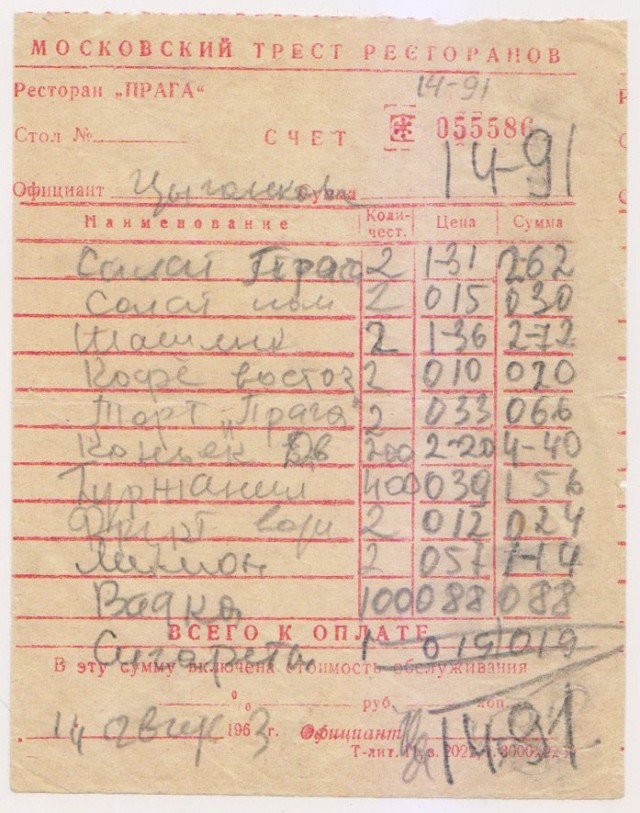 МОСКОВСКИЙ ТРЕСТ РЕСТОРАНОВ
Ресторан „ПРАГА“ 14-91
Стол № СЧЕТ 055586
Официант Сумма 14-91
Наименование Коли-чест. Цена Сумма
Салат Праг 2 1-31 2-62
Салат пом 2 015 030
Шашлик 2 1-36 2-72
Кофе восто 2 010 020
Торт „Прага“ 2 033 066
Коньек 200 2-20 4-40
Гуржании 400 039 156
Фрукт вода 2 012 024
Лимон 2 057 1-14
Водка 100 088 088
ВСЕГО К ОПЛАТЕ
Сигареты 1 019 019
В эту сумму включена стоимость обслуживания
% руб. коп.
14 август 1963 г. Официант 14-91
Т-лит.